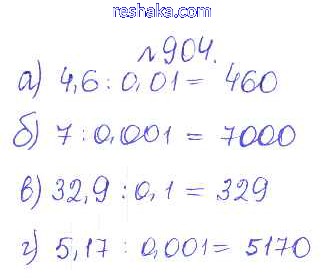 reshaka.com
№904.
а) 4,6 : 0,01 = 460
б) 7 : 0,001 = 7000
в) 32,9 : 0,1 = 329
г) 5,17 : 0,001 = 5170